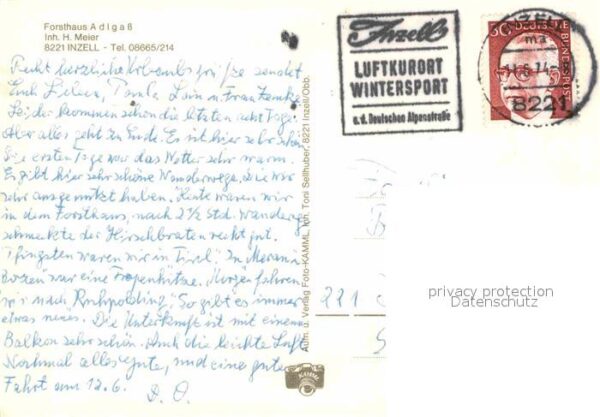 Forsthaus Adlgaß
Inh. H. Meier
8221 INZELL - Tel. 08665/214
Recht herzliche Urlaubsgrüße sendet
Euch Lieben, Tante
Leider kommen schon die letzten acht Tage.
Aber alles geht zu Ende. Es ist hier sehr schön
Die ersten Tage war das Wetter sehr warm.
Es gibt hier sehr schöne Wanderwege, die wir
sehr ausgenützt haben. Heute waren wir
in dem Forsthaus, nach 2½ Std. Wanderg
schmeckte der Hirschbraten recht gut.
Pfingsten waren wir in Tirol. In Meran
Bozen war eine Tropenhitze. Morgen fahren
wir nach Ruhpolding. So gibt es immer
etwas neues. Die Unterkunft ist mit einem
Balkon sehr schön. Auch die leichte Luft
Nochmal alles Gute, und eine gute
Fahrt am 12.6. D. O.
Aufn. u. Verlag Foto-KAMML, Inh. Toni Seilhuber, 8221 Inzell/Obb.
KAMML
Inzell
LUFTKURORT
WINTERSPORT
a.d. Deutschen Alpenstraße
50
DEUTSCHE BUNDESPOST
INZELL
ma
8221
221
privacy protection
Datenschutz